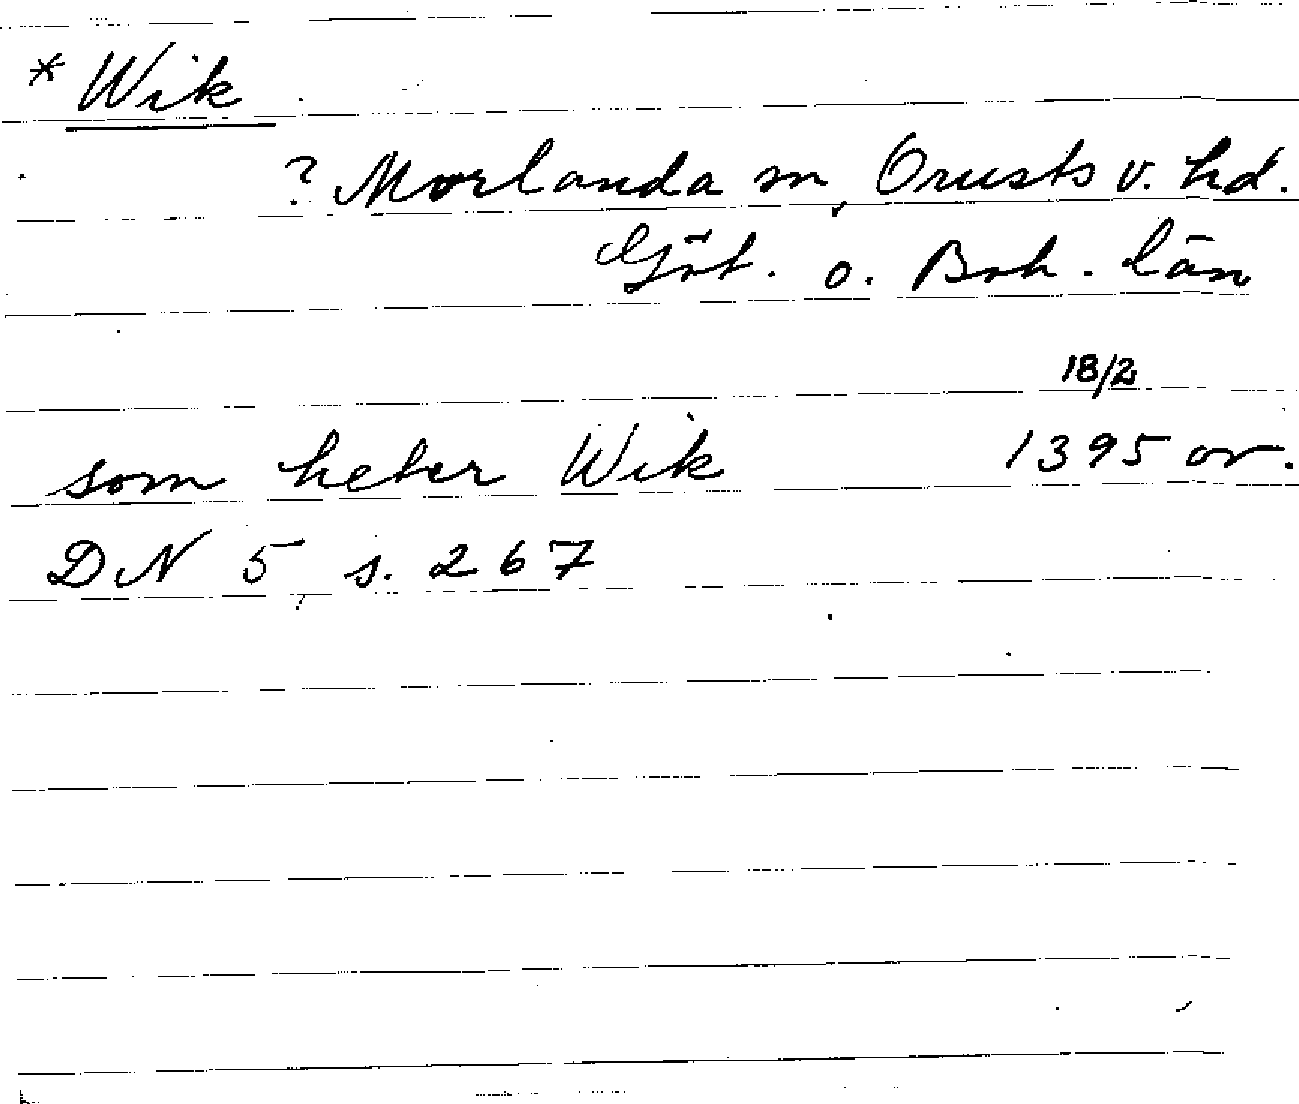 * Wik
? Morlanda sn, Orusts v. hd.
Göt. o. Boh. län
18/2
som heter Wik 1395 or.
DN 5 s. 267